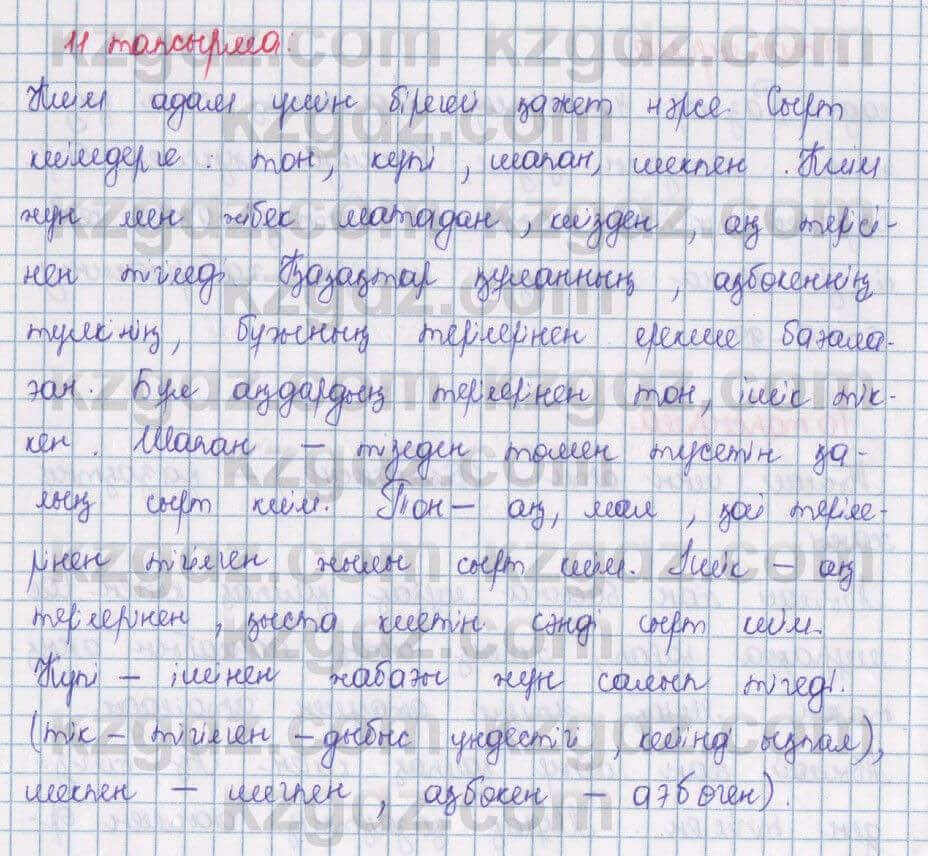 11 тапсырма.
Киім адам үшін бірегей қажет нәрсе. Сырт
киімдерге: тон, күпі, шапан, шекпен. Киім
жүн мен жібек матадан, киізден, аң терісі-
нен тігіледі. Қазақтар құланның, ақбөкеннің
түлкінің, бұғының терілерінен ерекше бағала-
ған. Бұл аңдардың терілерінен тон, ішік тік-
кен. Шапан – тізеден төмен түсетін қа-
лың сырт киім. Тон – аң, мал, қой теріле-
рінен тігілген жылы сырт киім. Ішік – аң
терілерінен, қыста киетін сәнді сырт киім.
Күпі – ішінен жабағы жүн салып тігеді.
(тік – тігілген – дыбыс үндестігі, кейінді ықпал),
шекпен – шегпен, ақбөкен – ақбөген).
kzgdz.com